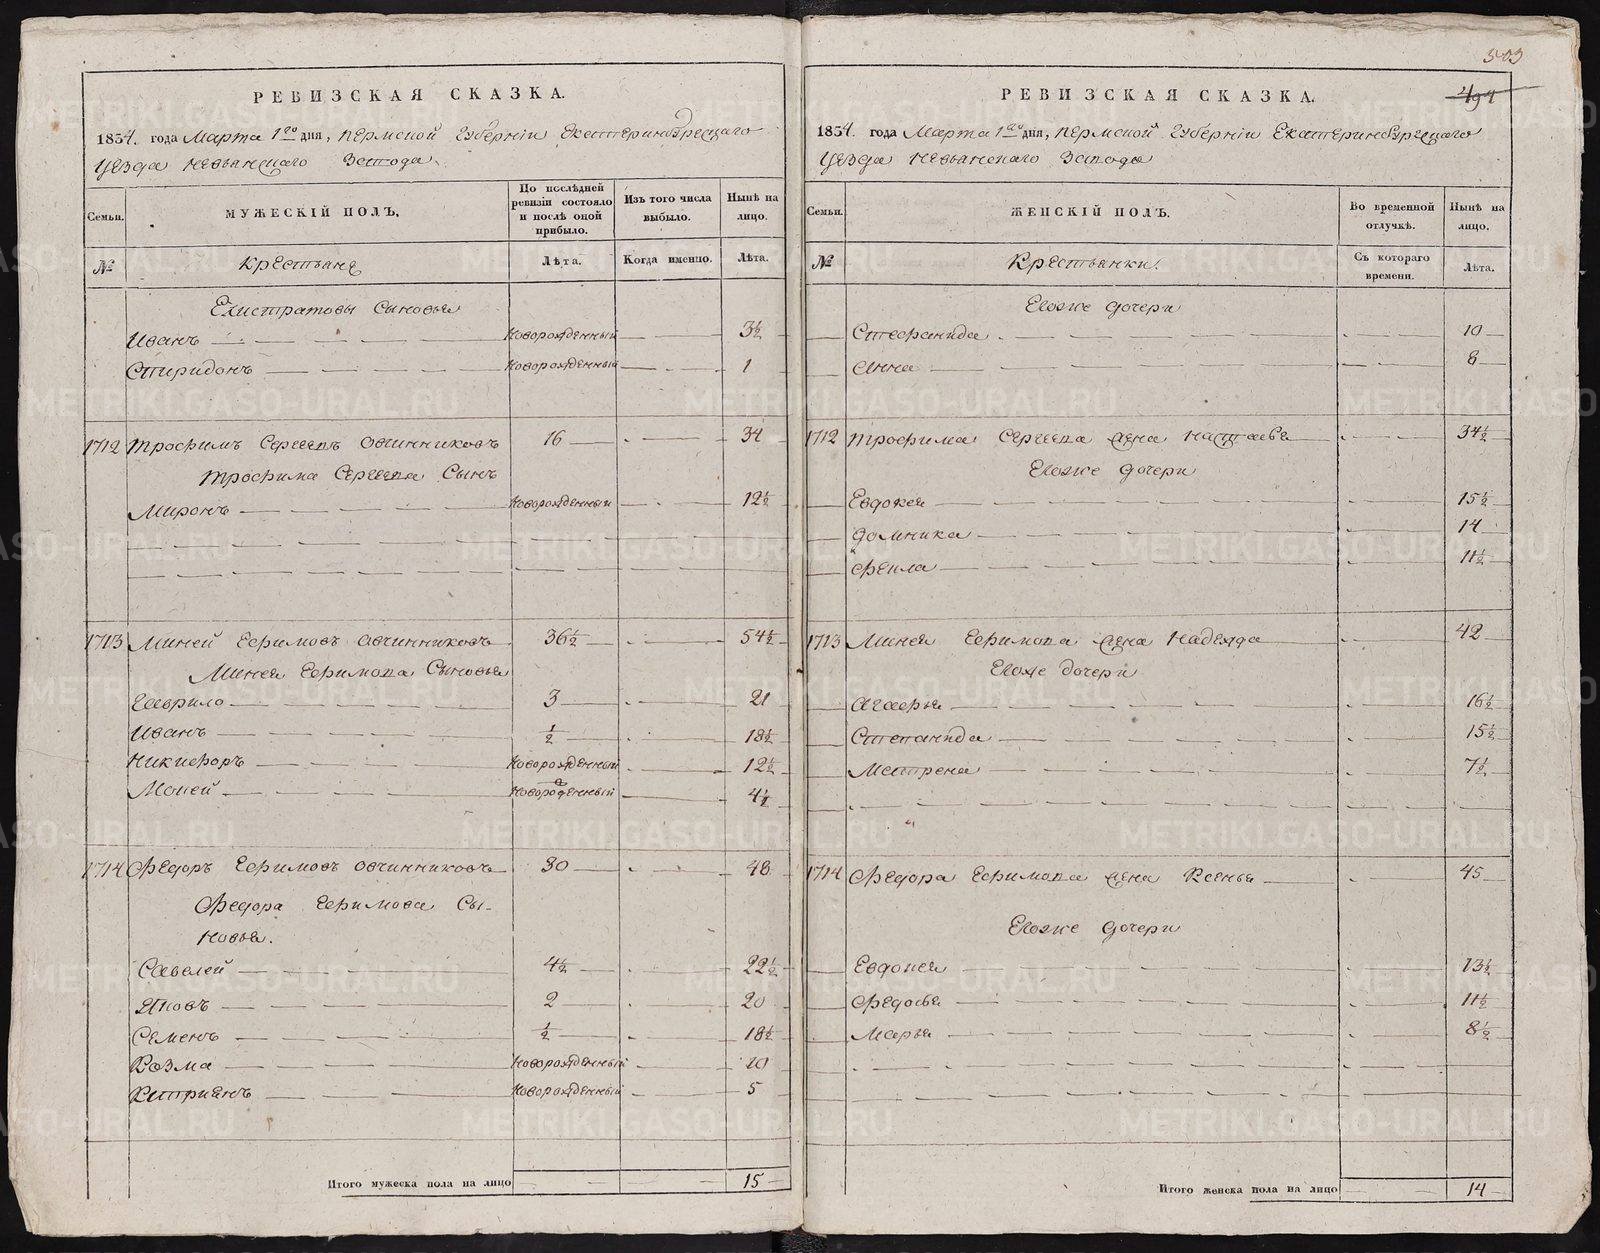 503
РЕВИЗСКАЯ СКАЗКА.
1834. года Марта 1го дня, Пермской Губернiи Екатеринбургскаго
Уезда Невьянскаго Завода
Семьи.
МУЖЕСКIЙ ПОЛЪ.
По послѣдней ревизiи состояло и послѣ оной прибыло.
Изъ того числа выбыло.
Нынѣ на лицо.
№
Крестьяне
Лѣта.
Когда именно.
Лѣта.
Елистратовы Сыновья
Иванъ Новорожденный 3½
Спиридонъ Новорожденный 1
1712 Трофимъ Сергеевъ Овчинниковъ 16 34
Трофима Сергеева Сынъ
Миронъ Новорожденный 12½
1713 Миней Ефимовъ Овчинниковъ 36½ 54½
Минея Ефимова Сыновья
Гаврило 3 21
Иванъ ½ 18½
Никифоръ Новорожденный 12½
Мокей Новорожденный 4½
1714 Федоръ Ефимовъ Овчинниковъ 30 48
Федора Ефимова Сы-
новья.
Савелей 4½ 22½
Яковъ 2 20
Семенъ ½ 18½
Козма Новорожденный 10
Киприянъ Новорожденный 5
Итого мужеска пола на лицо 15
РЕВИЗСКАЯ СКАЗКА.
494
1834. года Марта 1го дня, Пермской Губернiи Екатеринбургскаго
Уезда Невьянскаго Завода
Семьи.
ЖЕНСКIЙ ПОЛЪ.
Во временной отлучкѣ.
Нынѣ на лицо.
№
Крестьянки.
Съ котораго времени.
Лѣта.
Егоже дочери
Стефанида 10
Анна 8
1712 Трофима Сергеева жена Настасья 34½
Егоже дочери
Евдокея 15½
Домника 14
Фекла 11½
1713 Минея Ефимова жена Надежда 42
Егоже дочери
Агафья 16½
Степанида 15½
Матрена 7½
1714 Федора Ефимова жена Ксенья 45
Егоже дочери
Евдокея 13½
Федосья 11½
Марья 8½
Итого женска пола на лицо 14
METRIKI.GASO-URAL.RU